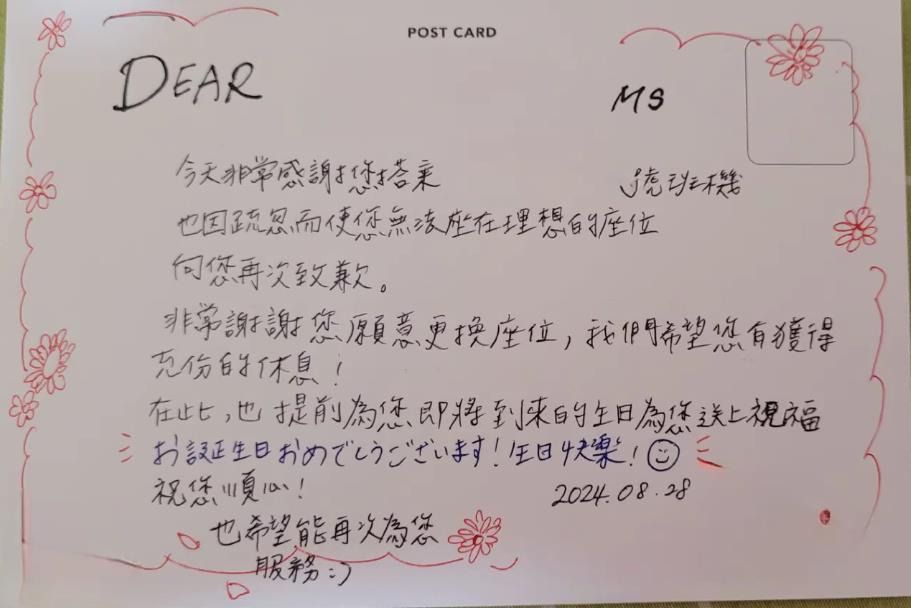 POST CARD
DEAR MS
今天非常感謝您搭乘 號班機
也因疏忽而使您無法座在理想的座位
向您再次致歉。
非常謝謝您願意更換座位,我們希望您有獲得
充份的休息!
在此,也提前為您即將到來的生日為您送上祝福
お誕生日おめでとうございます!生日快樂!
祝您順心! 2024.08.28
也希望能再次為您
服務:)